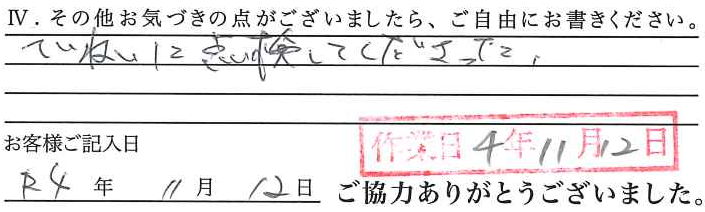 Ⅳ.その他お気づきの点がございましたら、ご自由にお書きください。
ていねいに点検してくださった。
お客様ご記入日
作業日 4年11月12日
R4 年 11月 12日 ご協力ありがとうございました。